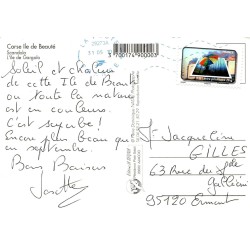 Corse Ile de Beauté
Scandola
L'Ile de Gargalu
3700174900003
Soleil et chaleur
de cette Ile de Beauté
où toute la nature
est en couleurs.
C'est superbe !
Encore plus beau que
en septembre.
Bons Baisers
Josette
Jacqueline
GILLES
63 Rue du Gal
Gallieni
95120 Ermont